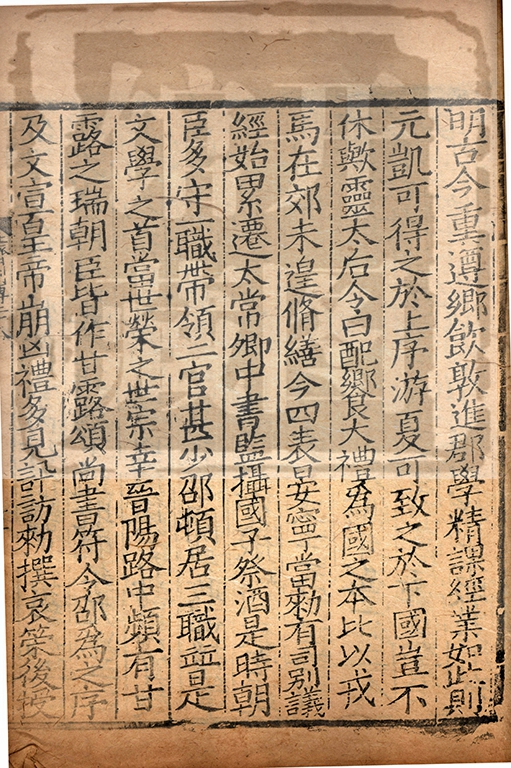 明古今重遵鄉飲敦進郡學精課經業如此則
元凱可得之於上序游夏可致之於下國豈不
休歟靈太后令曰配饗大禮為國之本比以戎
馬在郊未遑脩繕今四表晏寧當勑有司别議
經始累遷太常卿中書監攝國子祭酒是時朝
臣多守一職帶領二官甚少邵頓居三職並是
文學之首當世榮之世宗幸晉陽路中頻有甘
露之瑞朝臣皆作甘露頌尚書符令邵為之序
及文宣皇帝崩凶禮多見訊訪勑撰哀策後授